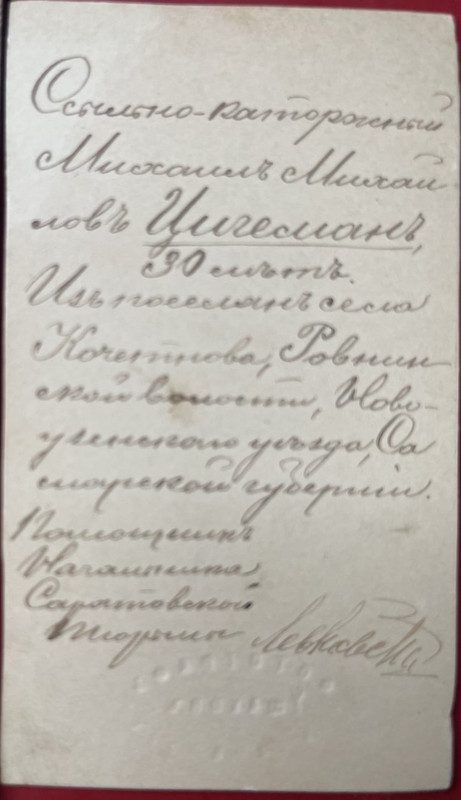 Ссыльно-каторжный
Михаилъ Михай-
ловъ Цигеманъ,
30 лѣтъ.
Изъ поселянъ села
Кочетнова, Ровнин-
ской волости, Ново-
узенского уѣзда, Са
марской губерніи.
Помощникъ
Начальника
Саратовской
Тюрьмы